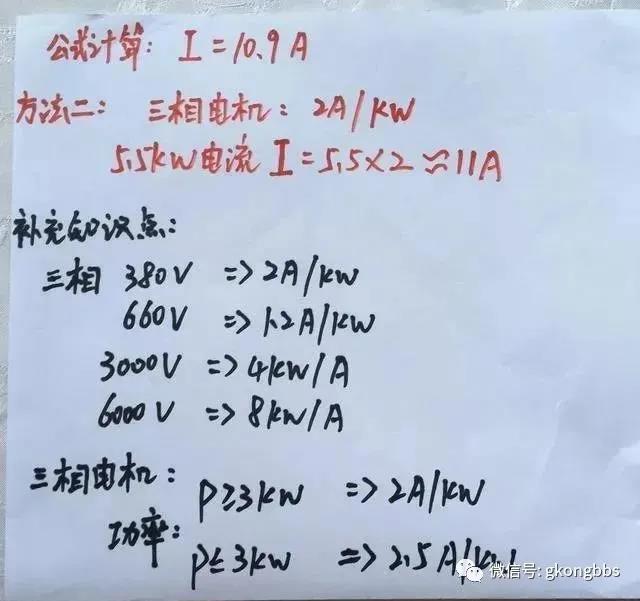 公式计算: I=10.9A
方法二: 三相电机: 2A/KW
5.5KW电流 I=5.5×2≈11A
补充知识点:
三相 380V => 2A/KW
660V => 1.2A/KW
3000V => 4KW/A
6000V => 8KW/A
三相电机: P≥3KW => 2A/KW
功率: P≤3KW => 2.5A/KW
微信号: gkongbbs